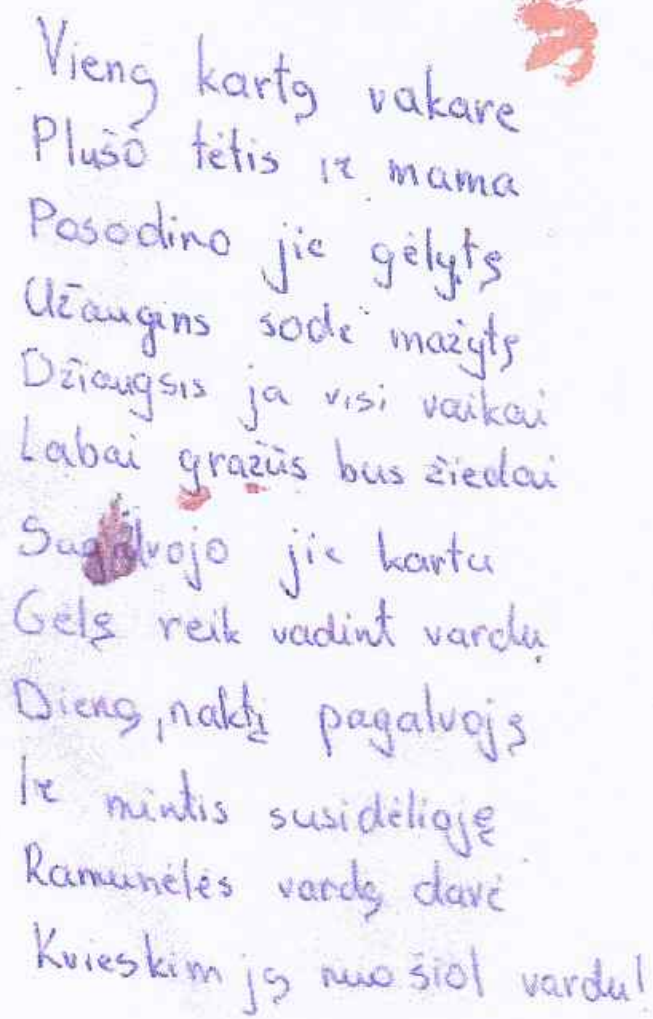 Vieną kartą vakare
Plušo tėtis ir mama
Pasodino jie gėlytę
Užaugins sode mažytę
Džiaugsis ja visi vaikai
Labai gražūs bus žiedai
Sugalvojo jie kartu
Gėlę reik vadint vardu.
Dieną, naktį pagalvoję
Ir mintis susidėlioję
Ramunėlės vardą davė
Kvieskim ją nuo šiol vardu!